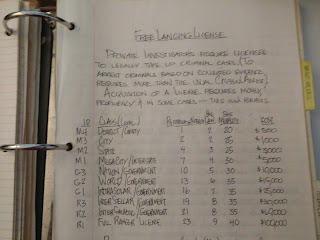 FREE LANCING LICENSE
PRIVATE INVESTIGATORS REQUIRE LICENSES
TO LEGALLY TAKE UP CRIMINAL CASES. (TO
ARREST CRIMINALS BASED ON COLLECTED EVIDENCE,
REQUIRES MORE THAN THE USUAL
ACQUISITION OF A LICENSE REQUIRES MONEY,
PROFICIENCY & IN SOME CASES
ID CLASS (LEVEL) COST
M4 DISTRICT / COUNTY 1 2 20 $500
M3 CITY 2 2 25 $1000
M2 STATE 4 3 25 $3000
M1 MEGACITY / INTERSTATE 7 4 30 $5000
G3 NATION / GOVERNMENT 10 5 30 $10,000
G2 WORLD / GOVERNMENT 13 6 35 $15,000
G1 INTRASOLAR / GOVERNMENT 16 7 35 $25,000
R3 INTERSTELLAR / GOVERNMENT 19 8 35
R2 INTERGALACTIC / GOVERNMENT 21 8 35
R1 FULL RANGER LICENSE 23 9 40